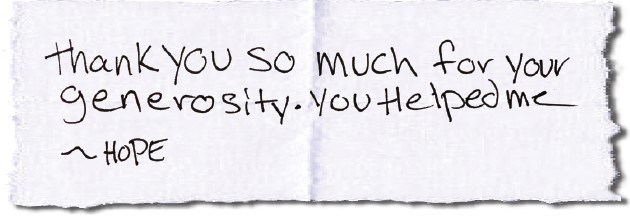 thank you so much for your
generosity. you Helped me
~ HOPE